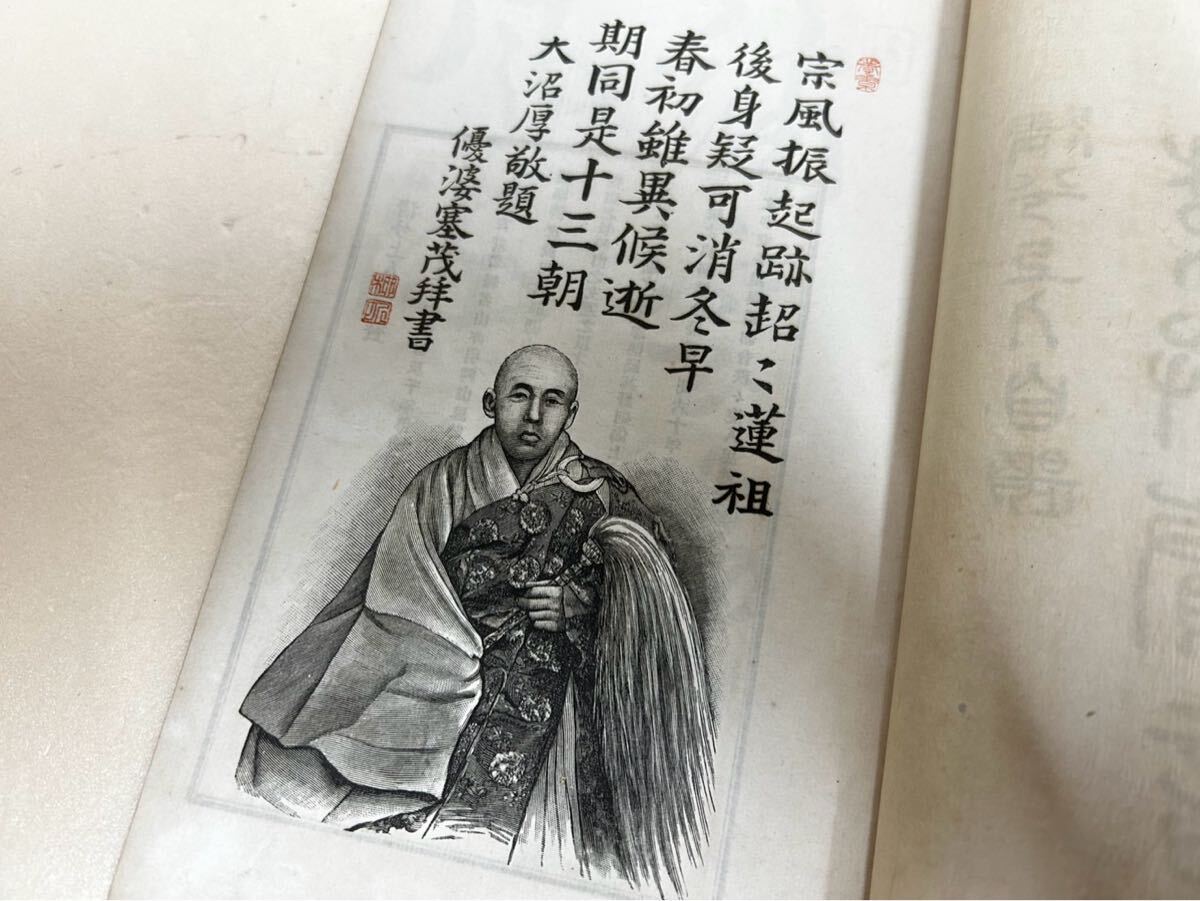 宗風振起跡超〻蓮祖
後身疑可消冬早
春初雖異候逝
期同是十三朝
大沼厚敬題
優婆塞茂拜書